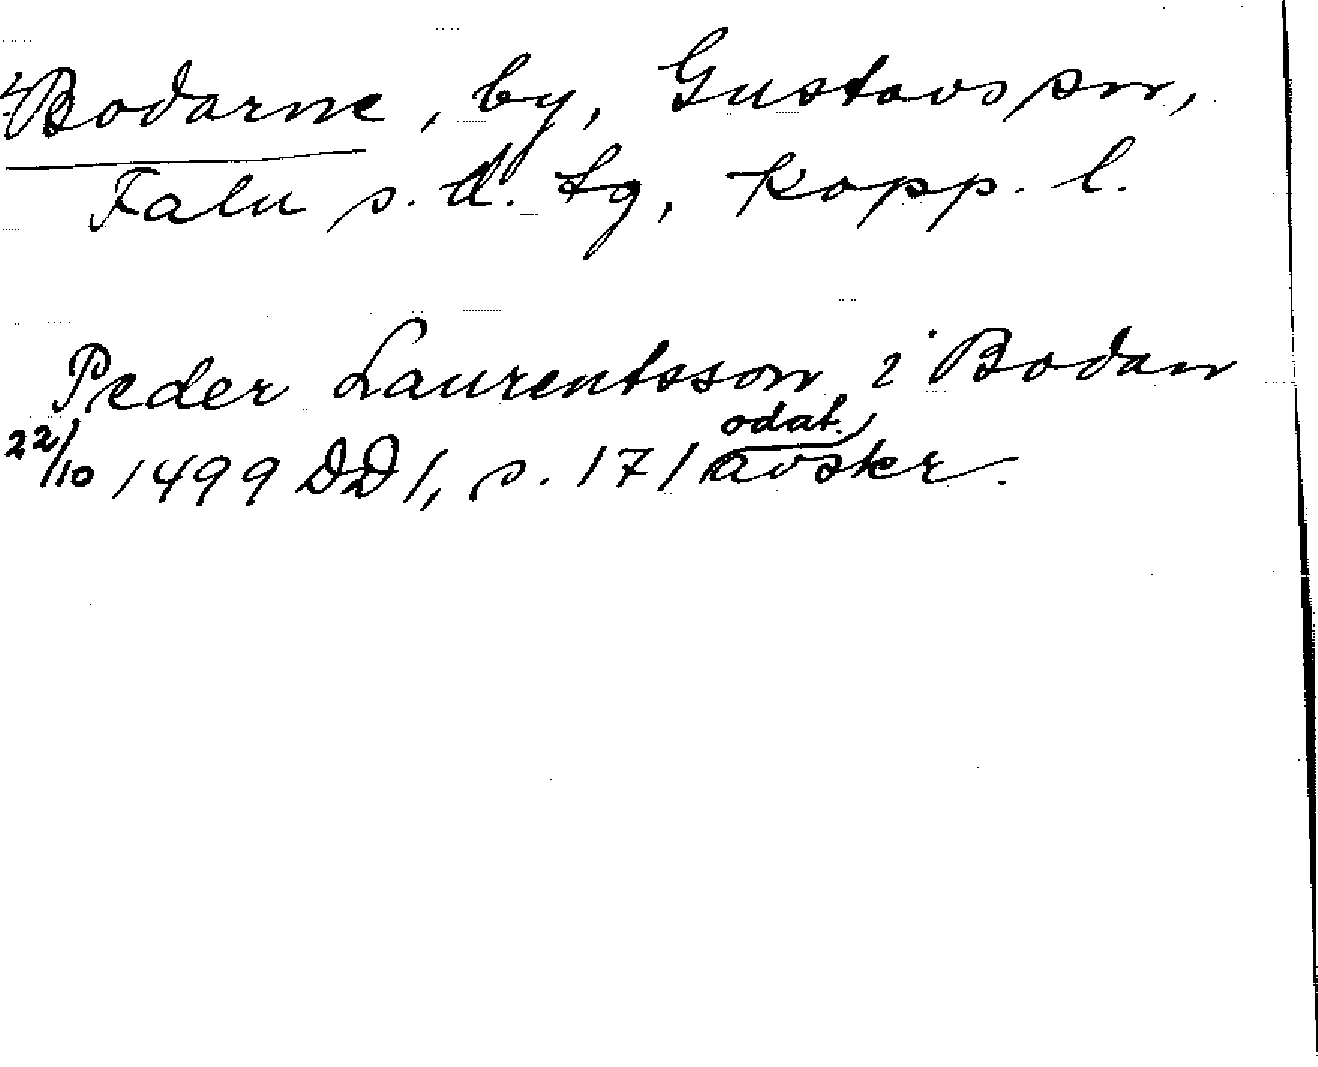 Bodarne, by, Gustavs sn,
Falu s. d. tg, Kopp. l.
Peder Laurentsson i Bodan
22/10 1499 DD 1, s. 171 odat. avskr.